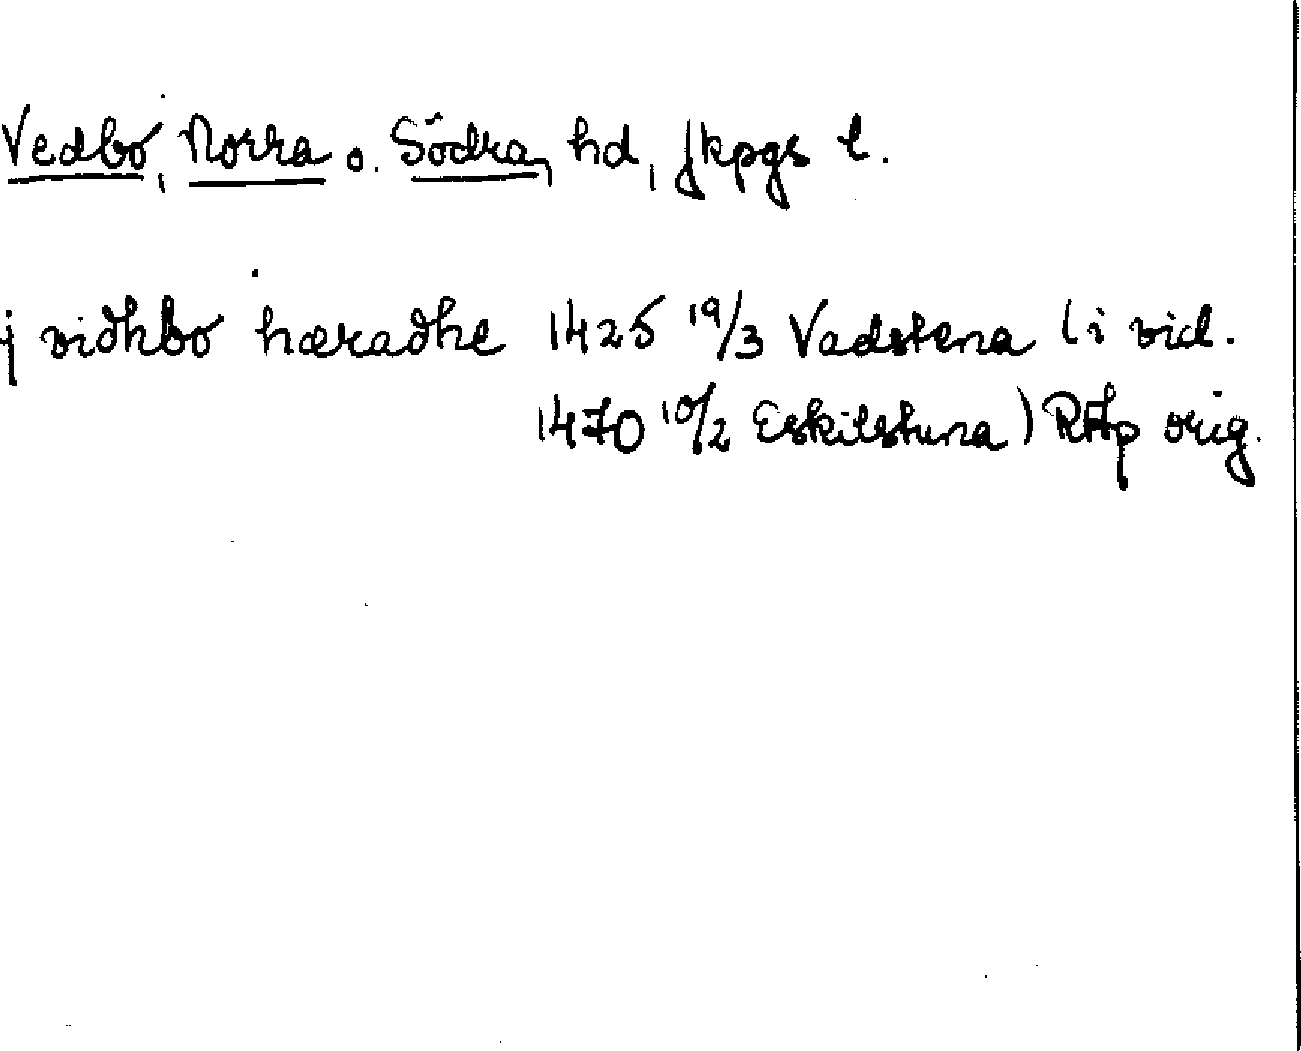 Vedbo, Norra o. Södra, hd, Jkpgs l.
j vidhbo hæradhe 1425 19/3 Vadstena (i vid.
1470 10/2 Eskilstuna) RAp orig.